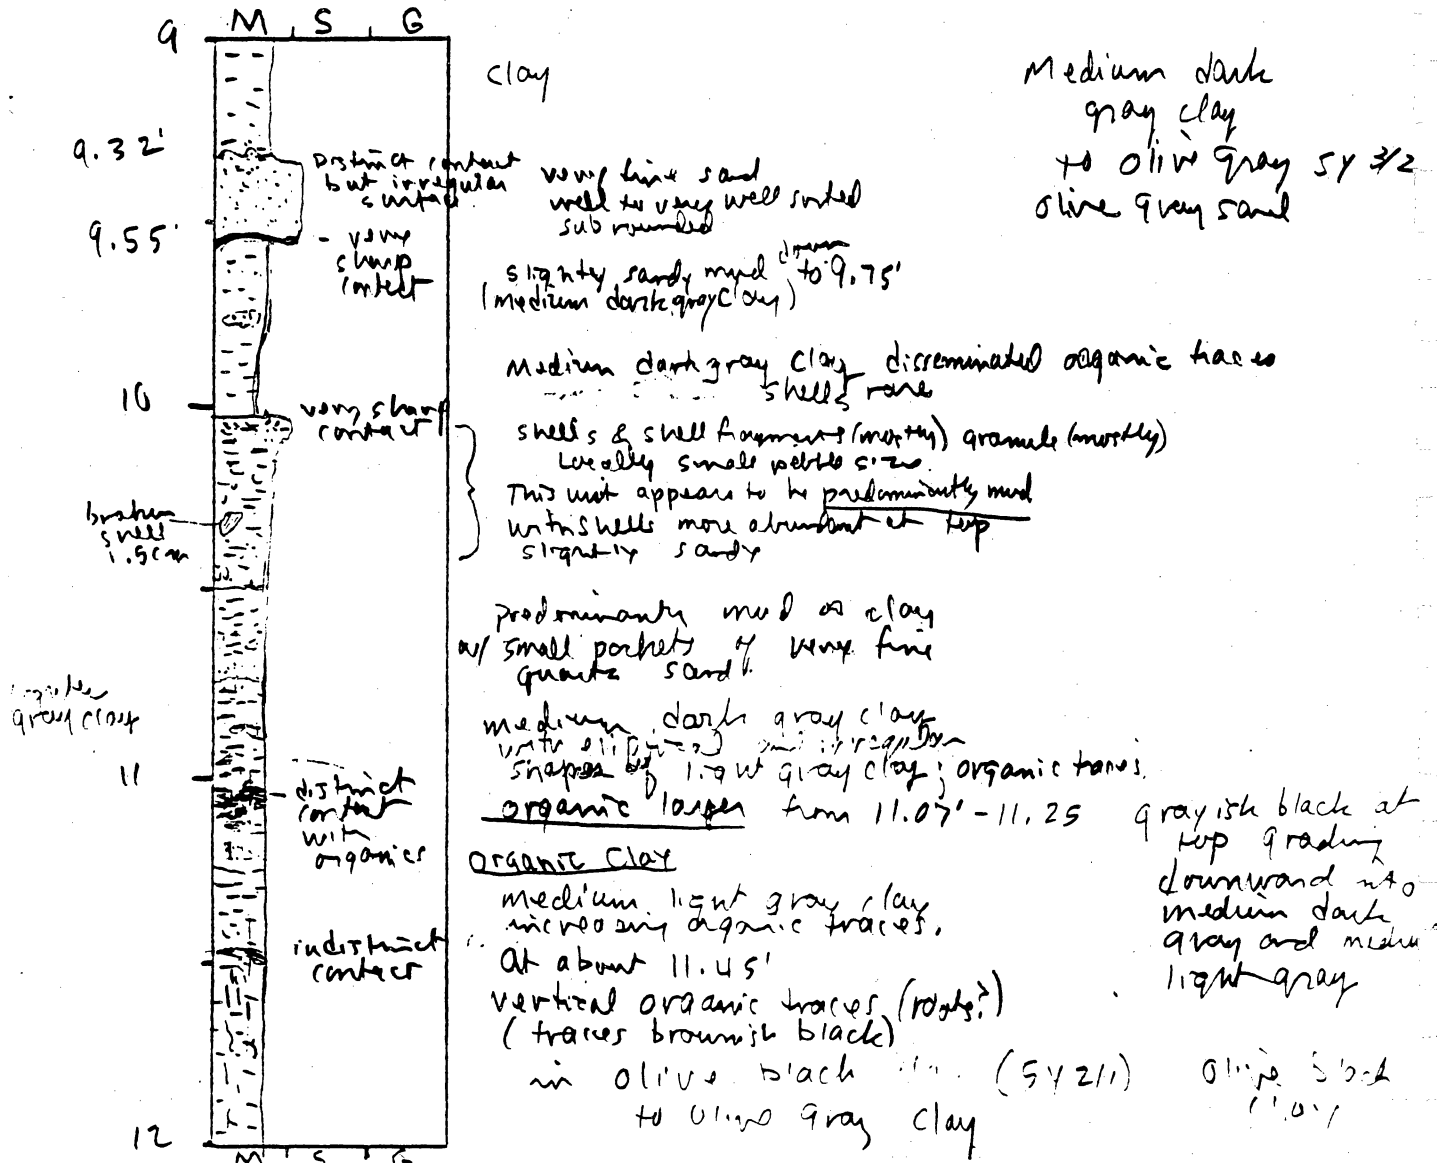 M S G
9
clay
Medium dark
gray clay
to olive gray 5Y 3/2
olive gray sand
9.32'
Distinct contact
but irregular
surface
very fine sand
well to very well sorted
subrounded
9.55'
- very
sharp
contact
slightly sandy mud down to 9.75'
(medium dark gray clay)
Medium dark gray clay disseminated organic traces
shells rare
10
very sharp
contact
shells & shell fragments (mostly) granule (mostly)
Locally small pebble size.
This unit appears to be predominantly mud
with shells more abundant at top
slightly sandy
broken
shell
1.5cm
predominantly mud or clay
w/ small pockets of very fine
quartz sand.
gray clay
medium dark gray clay
with elliptical and irregular
shapes of light gray clay; organic traces.
11
distinct
contact
with
organics
organic layer from 11.07' - 11.25
grayish black at
top grading
downward into
medium dark
gray and medium
light gray
Organic Clay
medium light gray clay
increasing organic traces.
indistinct
contact
At about 11.45'
vertical organic traces (roots?)
(traces brownish black)
in olive black (5Y 2/1)
to olive gray clay
olive black
12
M S G